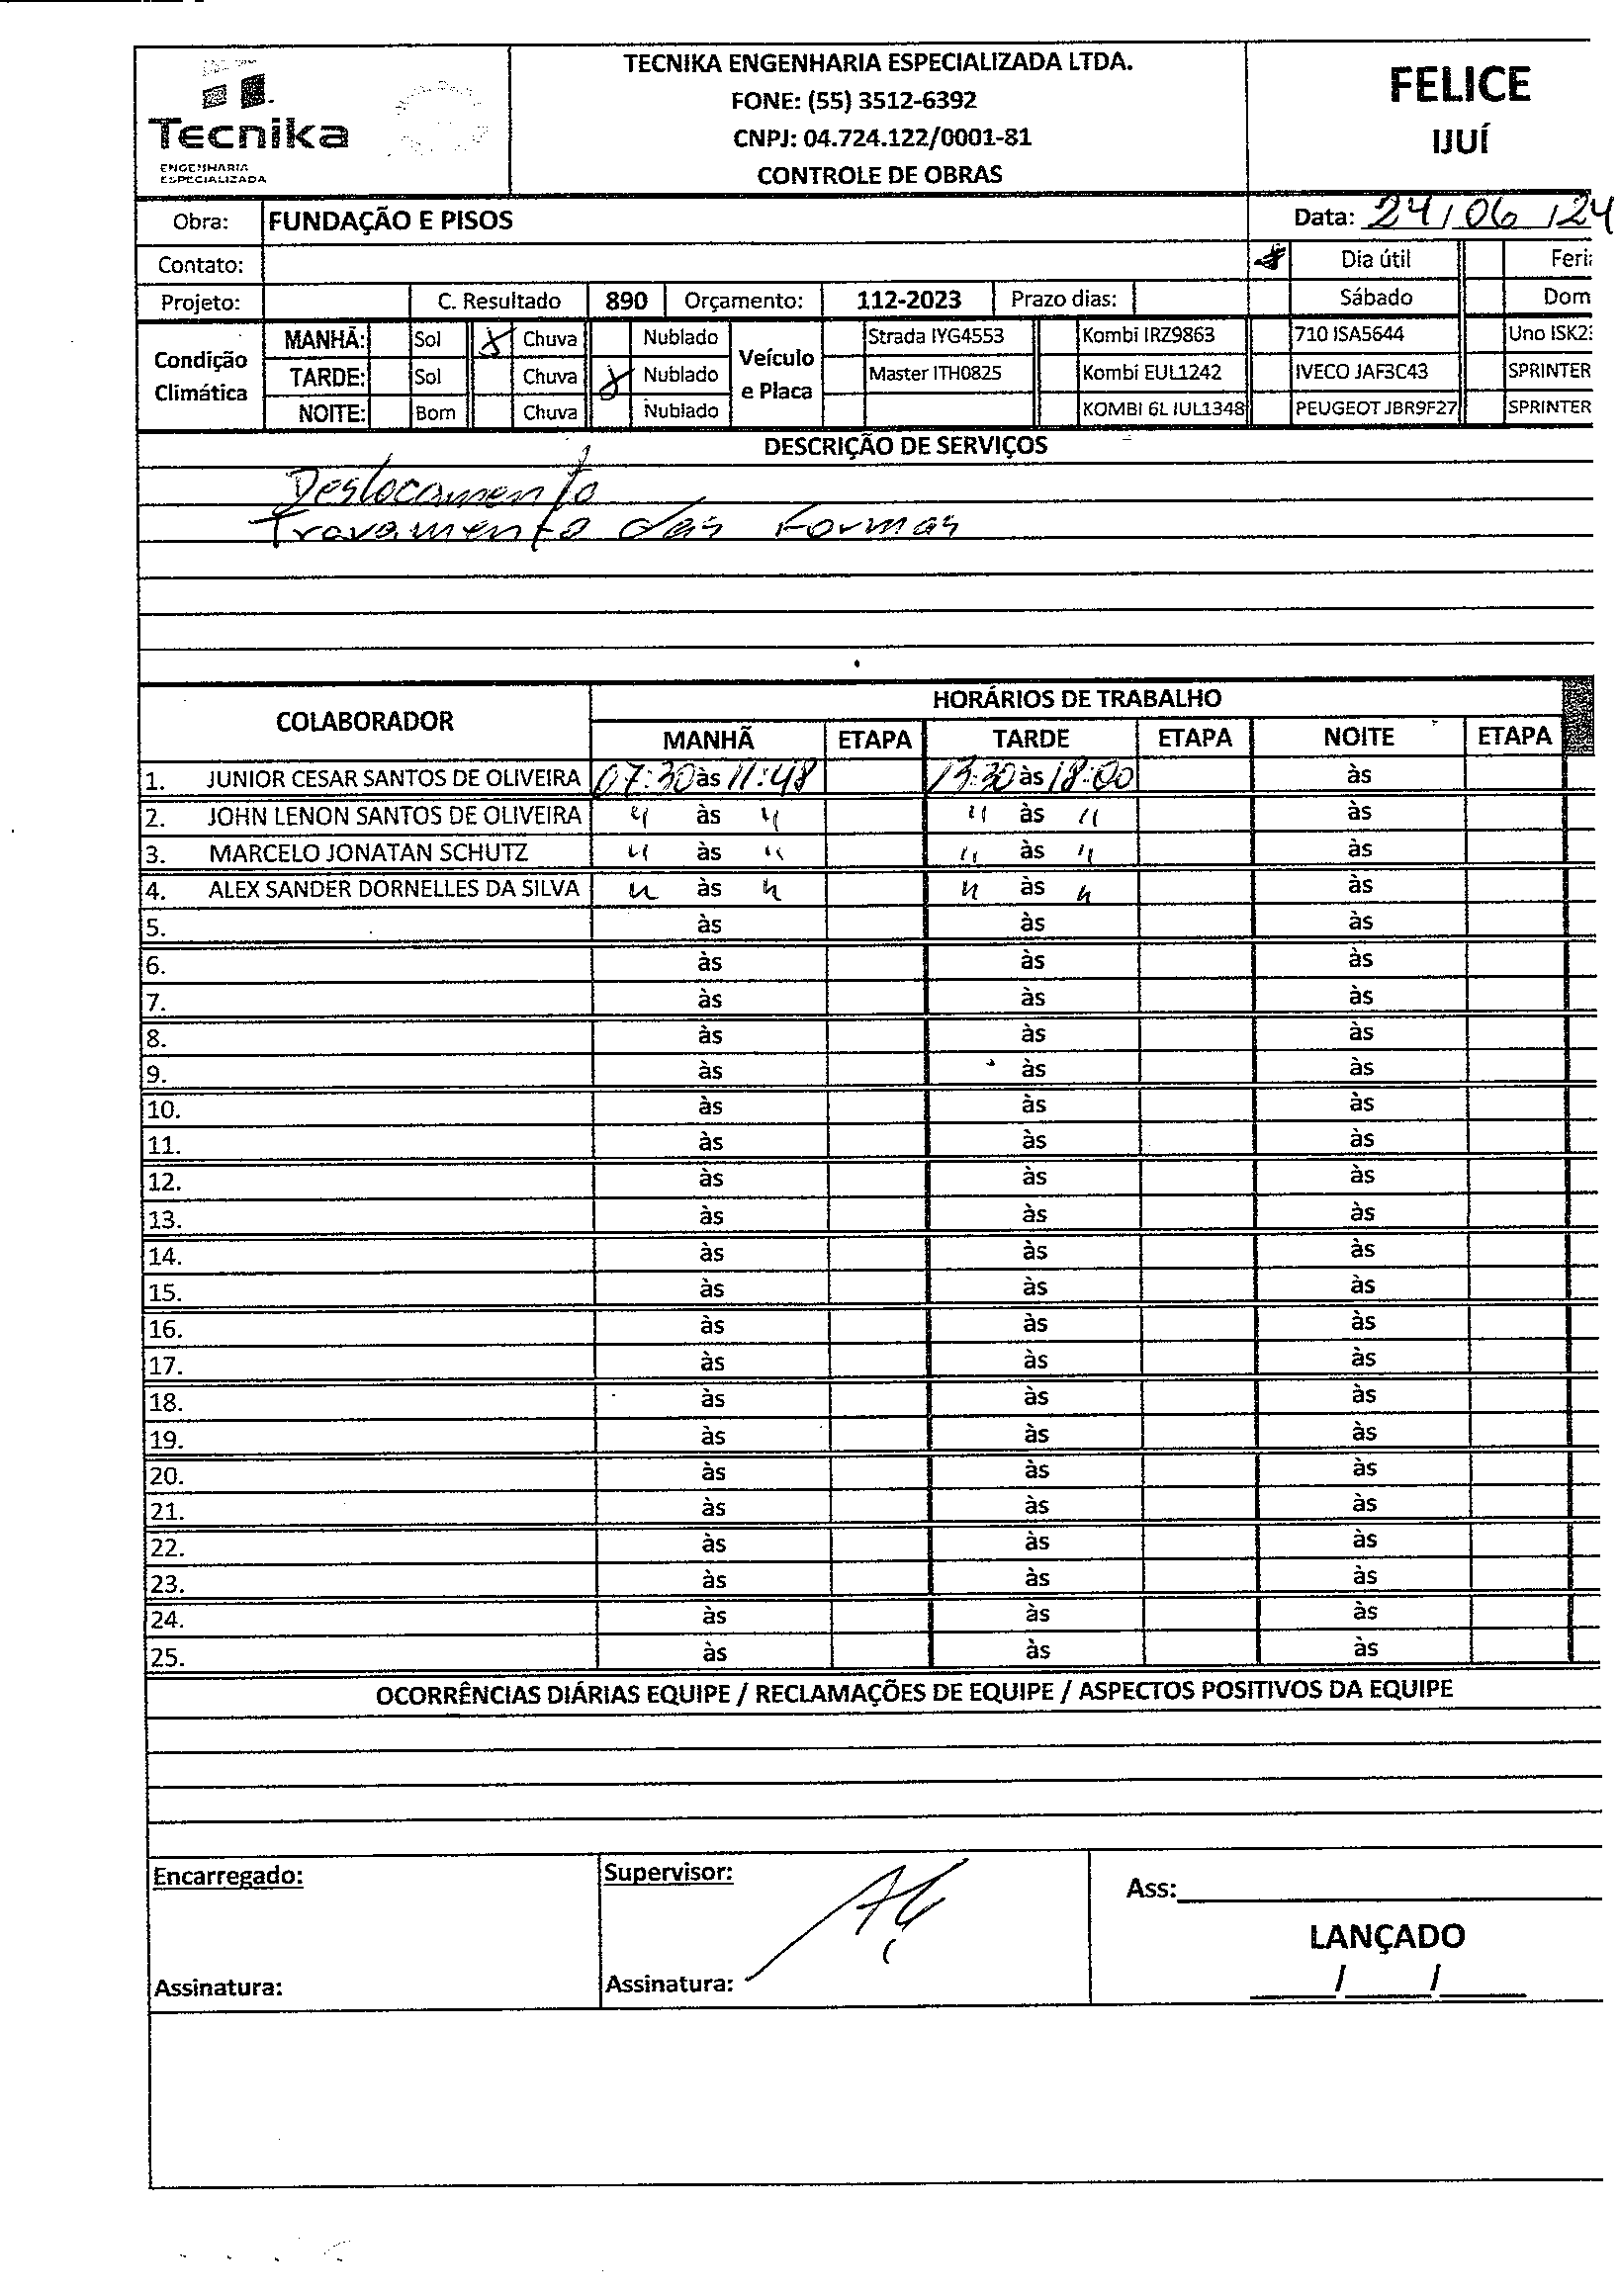 Tecnika
ENGENHARIA
ESPECIALIZADA
TECNIKA ENGENHARIA ESPECIALIZADA LTDA.
FONE: (55) 3512-6392
CNPJ: 04.724.122/0001-81
CONTROLE DE OBRAS
FELICE
IJUÍ
Obra: FUNDAÇÃO E PISOS Data: 24/06/24
Contato: Dia útil Feri
Projeto: C. Resultado 890 Orçamento: 112-2023 Prazo dias: Sábado Dom
Condição Climática
MANHÃ: Sol X Chuva Nublado Veículo e Placa Strada IYG4553 Kombi IRZ9863 710 ISA5644 Uno ISK2
TARDE: Sol Chuva X Nublado Master ITH0825 Kombi EUL1242 IVECO JAF3C43 SPRINTER
NOITE: Bom Chuva Nublado KOMBI 6L IUL1348 PEUGEOT JBR9F27 SPRINTER
DESCRIÇÃO DE SERVIÇOS
Deslocamento
Travamento das Formas
COLABORADOR HORÁRIOS DE TRABALHO
MANHÃ ETAPA TARDE ETAPA NOITE ETAPA
1. JUNIOR CESAR SANTOS DE OLIVEIRA 07:30 às 11:48 13:30 às 18:00 às
2. JOHN LENON SANTOS DE OLIVEIRA " às " " às " às
3. MARCELO JONATAN SCHUTZ " às " " às " às
4. ALEX SANDER DORNELLES DA SILVA " às " " às " às
5. às às às
6. às às às
7. às às às
8. às às às
9. às às às
10. às às às
11. às às às
12. às às às
13. às às às
14. às às às
15. às às às
16. às às às
17. às às às
18. às às às
19. às às às
20. às às às
21. às às às
22. às às às
23. às às às
24. às às às
25. às às às
OCORRÊNCIAS DIÁRIAS EQUIPE / RECLAMAÇÕES DE EQUIPE / ASPECTOS POSITIVOS DA EQUIPE
Encarregado: Supervisor: Ass:
LANÇADO
Assinatura: Assinatura: / /